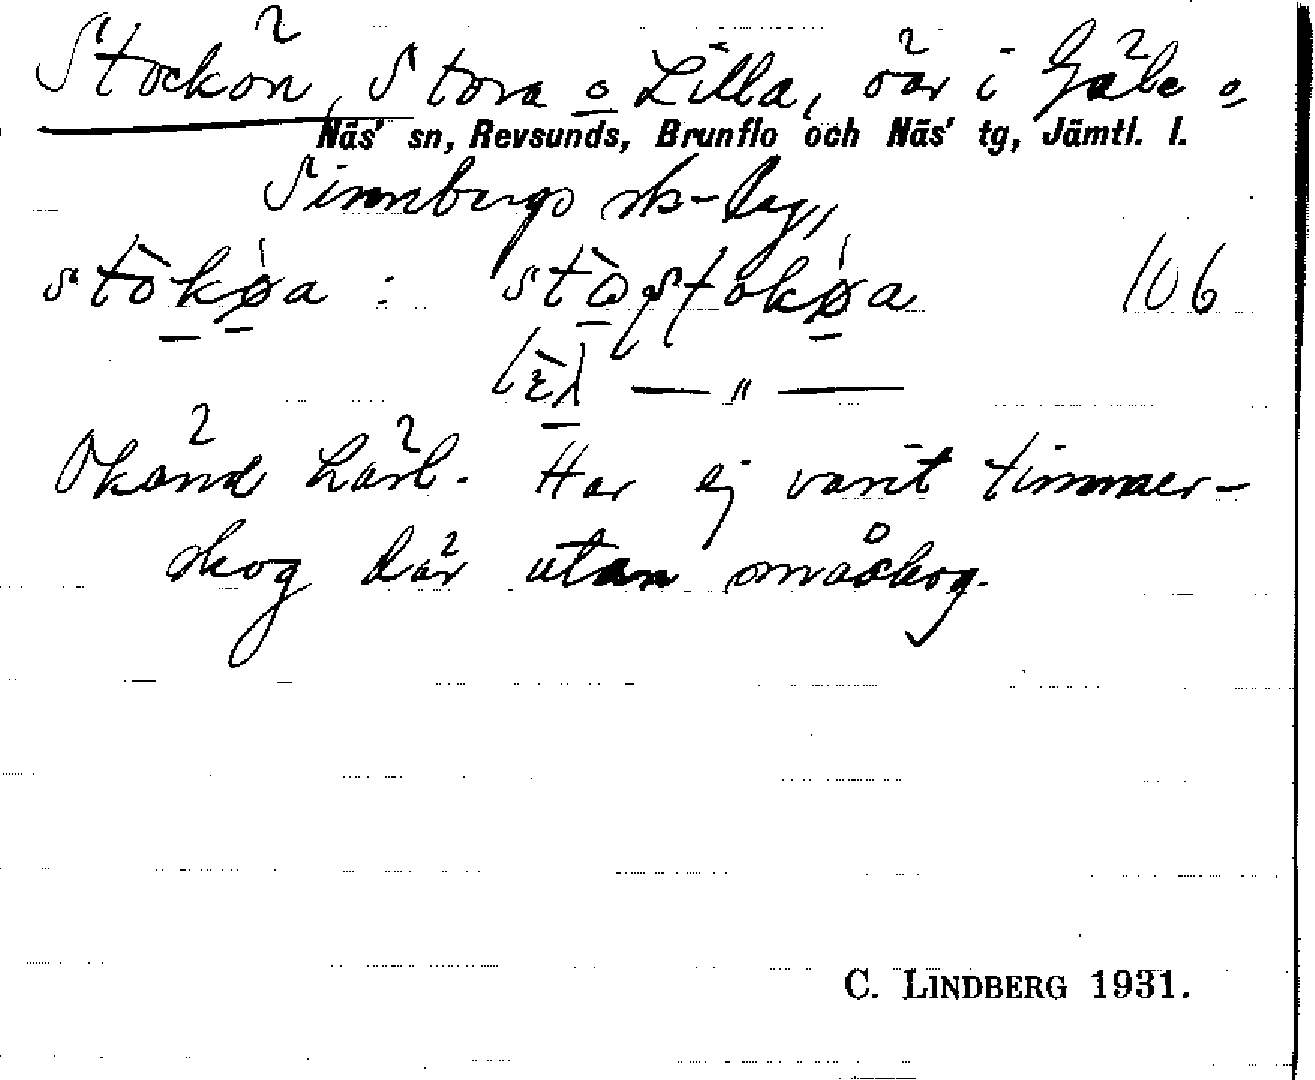 Stockön, Stora o Lilla, öar i Gåle o
Näs' sn, Revsunds, Brunflo och Näs' tg, Jämtl. l.
Sinnbergs sk-lag,
stòkø̀a : stò stokø̀a 106
lèɩ̀ — " —
Okänd härl. Har ej varit timmer-
skog där utan småskog.
C. LINDBERG 1931.